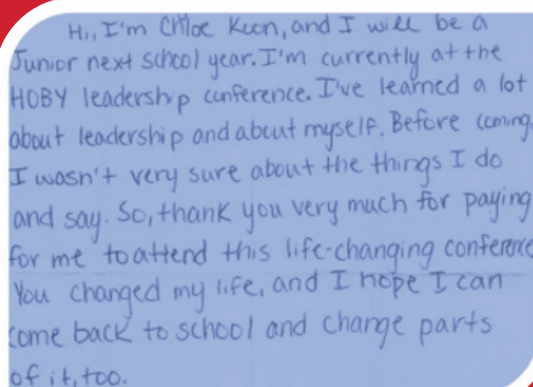 Hi, I'm Chloe Koon, and I will be a
Junior next school year. I'm currently at the
HOBY leadership conference. I've learned a lot
about leadership and about myself. Before coming,
I wasn't very sure about the things I do
and say. So, thank you very much for paying
for me to attend this life-changing conference
You changed my life, and I hope I can
come back to school and change parts
of it, too.